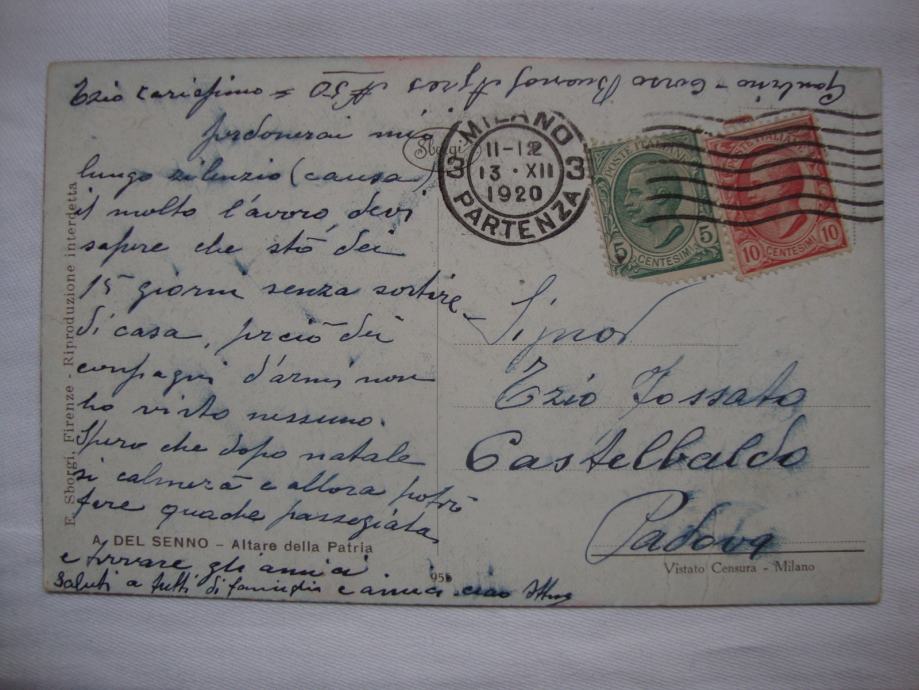 Ezio carissimo
perdonerai mio
lungo silenzio (causa)
il molto lavoro devi
sapere che stó dei
15 giorni senza sortire
di casa, perciò dei
compagni d'armi non
ho visto nessuno.
Spero che dopo natale
si calmerà e allora potrò
fare qualche passegiata
e trovare gli amici
Saluti a tutti di famiglia e amici ciao
Corso Buenos Ayres № 30
Sborgi
MILANO
11-12
3 13 · XII 3
1920
PARTENZA
POSTE ITALIANE
5 5
CENTESIMI
POSTE ITALIANE
10 10
CENTESIMI
Signor
Ezio Fossato
Castelbaldo
Padova
Vistato Censura - Milano
E. Sborgi, Firenze - Riproduzione interdetta
A. DEL SENNO - Altare della Patria